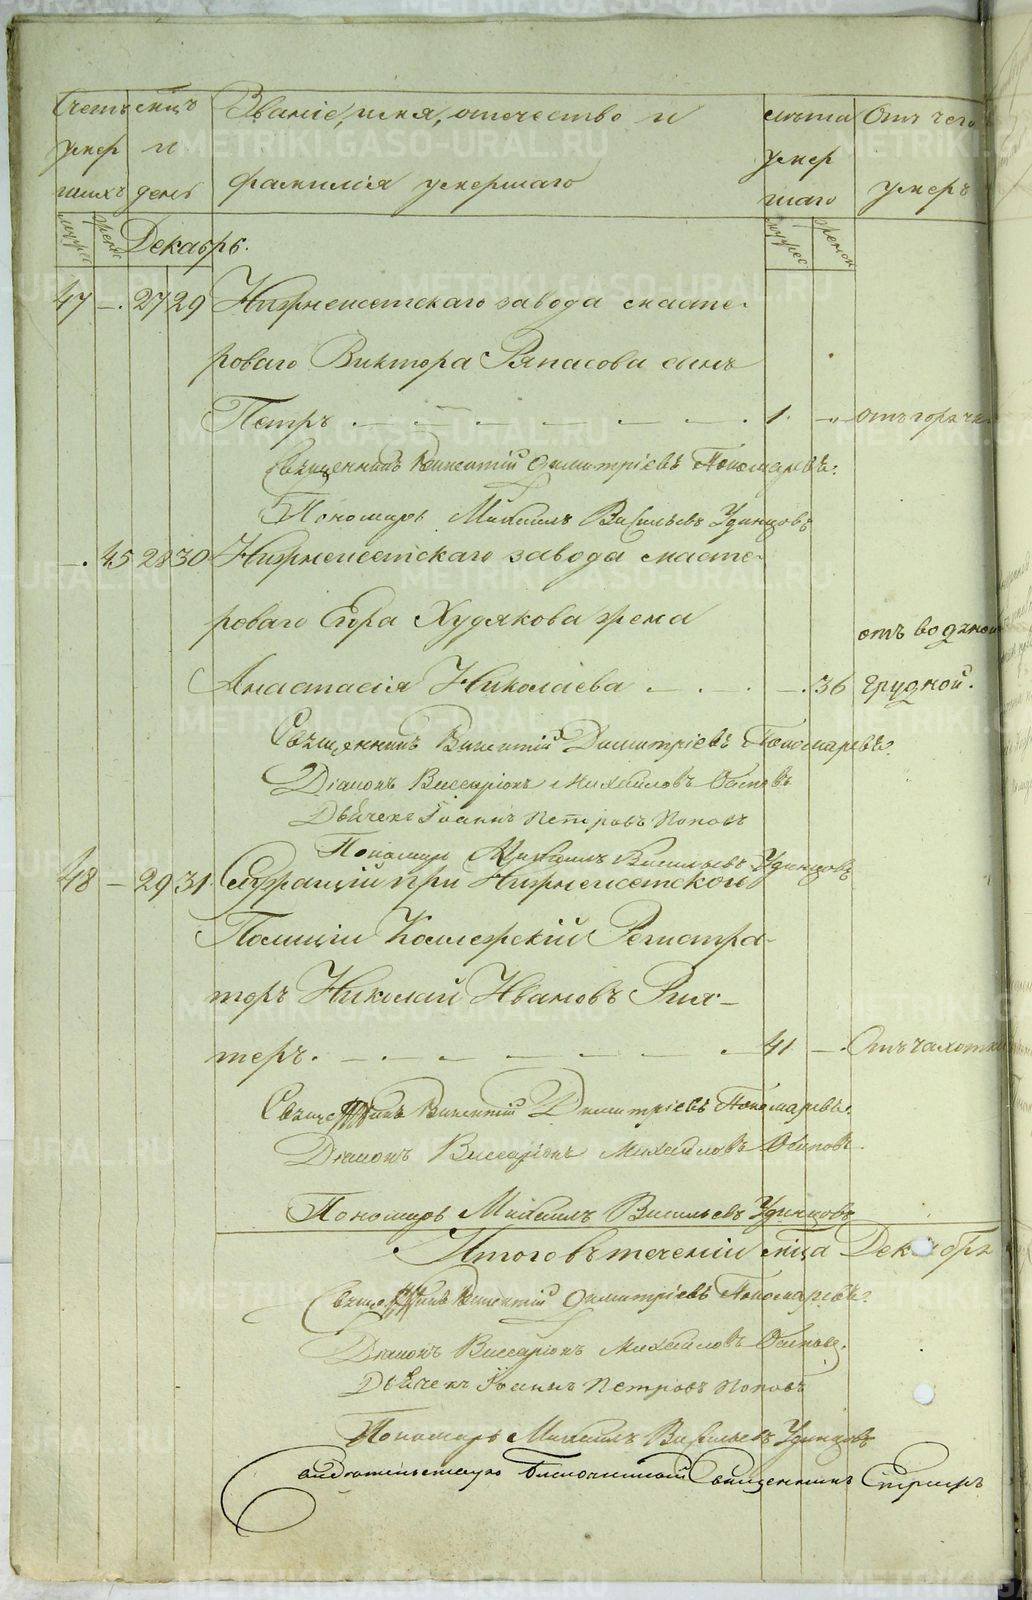 Счетъ мсцъ Званіе, имя, отчество и лѣта Отъ чего
умер и умер
шихъ день фамилія умершаго шаго умеръ
мужес женс Декабрь. мужес женск
47 —. 27 29 Нижнеисетскаго завода масте-
роваго Виктора Ряпасова сынъ
Петръ 1. — Отъ горячк
Священникъ Викентій Димитріевъ Пономаревъ.
Пономарь Михаилъ Васильевъ Удинцовъ
—. 45 28 30 Нижнеисетскаго завода масте-
роваго Егора Худякова жена
отъ водяной
Анастасія Николаева — 36 грудной.
Священникъ Викентій Димитріевъ Пономаревъ.
Діаконъ Виссаріонъ Михайловъ Осиповъ
Дьячекъ Іоаннъ Петровъ Поповъ
Пономарь Михаилъ Васильевъ Удинцовъ
48 — 29 31. Служащій при Нижнеисетской
Полиціи Коллежскій Регистра-
торъ Николай Ивановъ Рих-
теръ. 41. —. Отъ чахотки
Священникъ Викентій Димитріевъ Пономаревъ.
Діаконъ Виссаріонъ Михайловъ Осиповъ.
Пономарь Михаилъ Васильевъ Удинцовъ
Итого въ теченіи мсца Декабря
Священникъ Викентій Димитріевъ Пономаревъ.
Діаконъ Виссаріонъ Михайловъ Осиповъ.
Дьячекъ Іоаннъ Петровъ Поповъ
Пономарь Михаилъ Васильевъ Удинцовъ
Свидѣтельствую Благочинный Священникъ